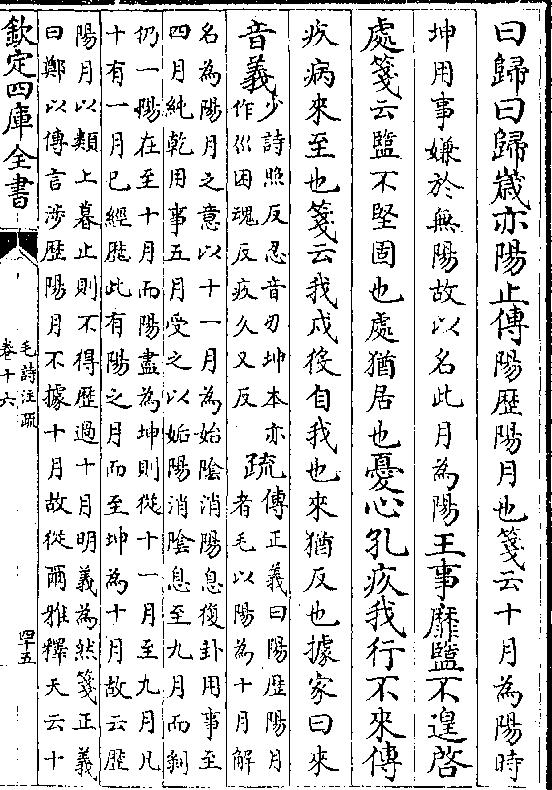 曰歸曰歸歲亦陽止傳陽歴陽月也箋云十月為陽時
坤用事嫌於無陽故以名此月為陽王事靡盬不遑啓
處箋云盬不堅固也處猶居也憂心孔疚我行不來傳
疚病來至也箋云我戍役自我也來猶反也據家曰來
音義少詩照反忍音刃坤本亦
作巛困魂反疚久又反
疏傳正義曰陽歴陽月
者毛以陽為十月解
名為陽月之意以十一月為始陰消陽息復卦用事至
四月純乾用事五月受之以姤陽消陰息至九月而剥
仍一陽在至十月而陽盡為坤則從十一月至九月凡
十有一月已經歴此有陽之月而至坤為十月故云歴
陽月以類上暮止則不得歴過十月明義為然箋正義
曰鄭以傳言涉歴陽月不據十月故從爾雅釋天云十
欽定四庫全書
毛詩注疏
卷十六
四十五